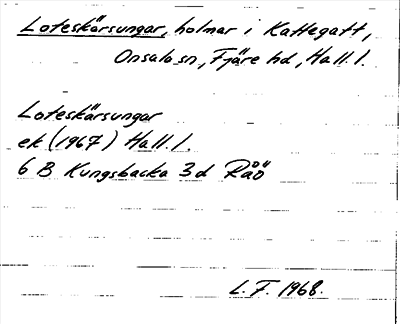 Loteskärsungar, holmar i Kattegatt,
Onsala sn, Fjäre hd, Hall. l.
Loteskärsungar
ek (1967) Hall. l.
6 B Kungsbacka 3d Råö
L.F. 1968.